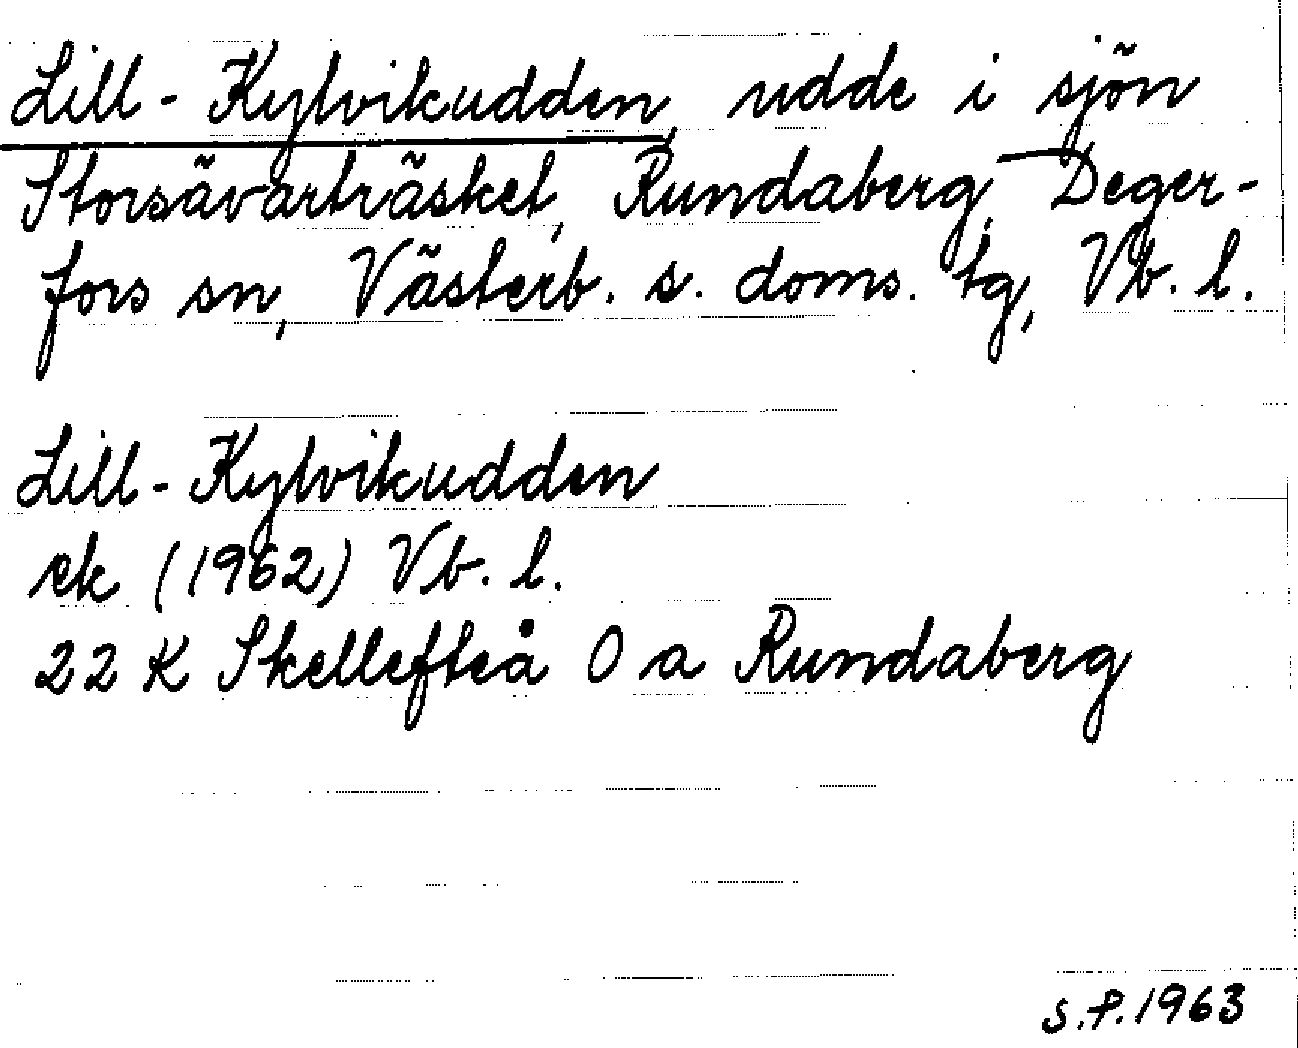 Lill-Kylvikudden, udde i sjön
Storsävarträsket, Rundaberg, Deger-
fors sn, Västerb. s. doms. tg, Vb. l.
Lill-Kylvikudden
ek (1962) Vb. l.
22 K Skellefteå O a Rundaberg
S.P. 1963